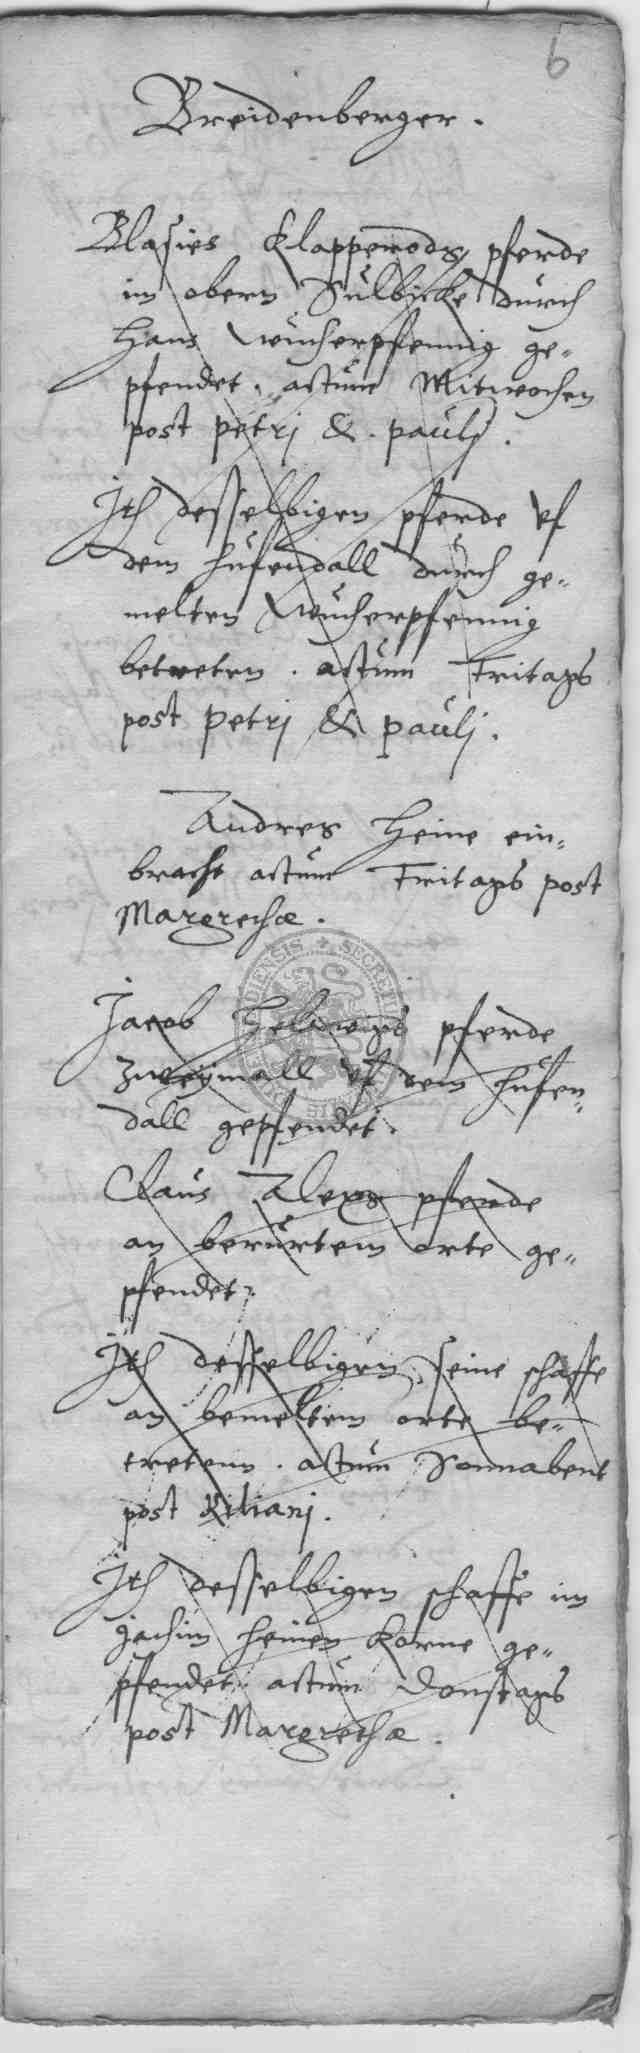 6
Breidenberger.
Blasies Klapperods pferde
im obern Sulbicke durch
Hans Wucherpfennig ge-
pfendet. actum Mitwochen
post petrj & paulj.
Ith desselbigen pferde vf
dem hufendall durch ge-
melten Wucherpfennig
betreten. actum Fritags
post petrj & paulj.
Andres Heine ein-
bracht actum Fritags post
Margrethæ.
Jacob Helwigs pferde
zweymall vf dem hufen-
dall gepfendet.
Claus Alexs pferde
an berurtem orte ge-
pfendet.
Ith desselbigen seine schaffe
an bemeltem orte be-
tretenn. actum Sonnabent
post Kilianj.
Ith desselbigen schaffe im
Jachim heinen Korne ge-
pfendet. actum Donstags
post Margrethæ.
SECRET